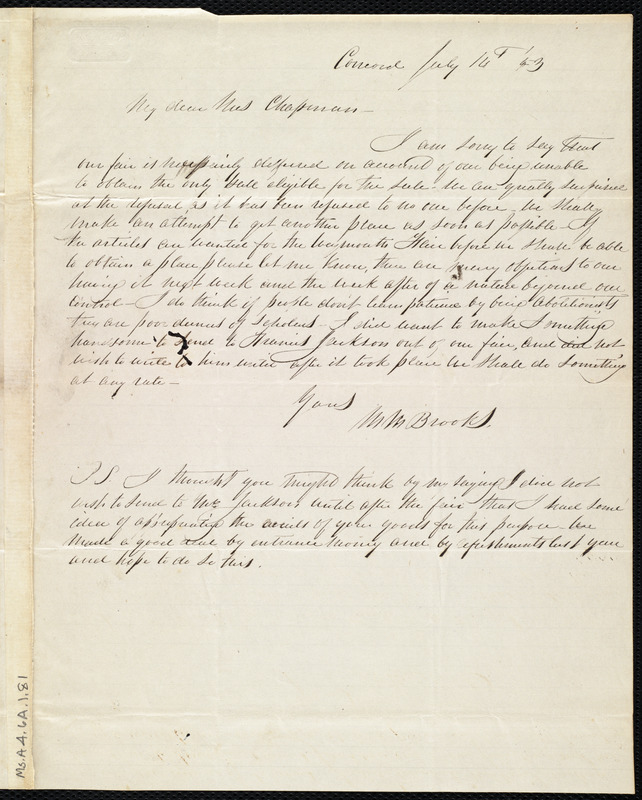 Concord July 14th '43
My dear Mrs Chapman—
I am sorry to say that
our fair is necessarily deferred on account of our being unable
to obtain the only Hall eligible for the Sale. We are greatly surprised
at the refusal as it has been refused to no one before. We shall
make an attempt to get another place as soon as possible— If
the articles are wanted for the Weymouth Fair before we shall be able
to obtain a place please let me know, there are many objections to our
having it next week and the week after of a nature beyond our
control— I do think if people don't learn patience by being abolitionists
they are poor of scholars— I did want to make something
handsome to send to Francis Jackson out of our fair, and did not
wish to write to him until after it took place We shall do something
at any rate—
Yours
M M Brooks.
P.S. I thought you might think by my saying I did not
wish to send to Mr. Jackson until after the fair that I had some
idea of appropriating the avails of your goods for this purpose. We
made a good deal by entrance money and by refreshments last year
and hope to do so this.
Ms.A.4.6A.1.81